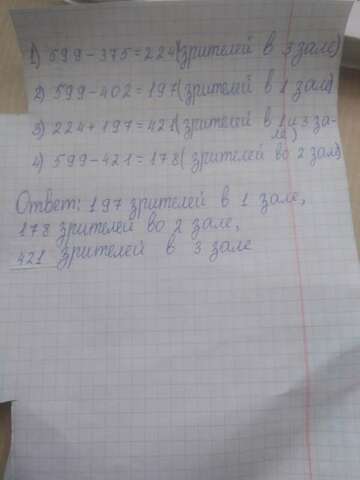 1) 599-375=224(зрителей в 3 зале)
2) 599-402=197(зрителей в 1 зале)
3) 224+197=421(зрителей в 1и 3 за-
ле)
4) 599-421=178(зрителей во 2 зале)
Ответ: 197 зрителей в 1 зале,
178 зрителей во 2 зале,
421 зрителей в 3 зале